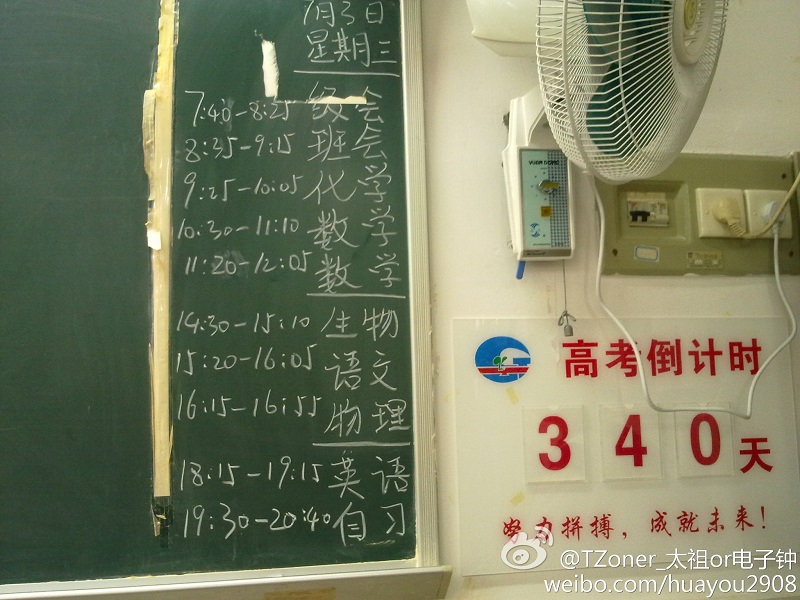 7月3日
星期三
7:40-8:25 级会
8:35-9:15 班会
9:25-10:05 化学
10:30-11:10 数学
11:20-12:05 数学
14:30-15:10 生物
15:20-16:05 语文
16:15-16:55 物理
18:15-19:15 英语
19:30-20:40 自习
高考倒计时
340天
努力拼搏，成就未来！
@TZoner_太祖or电子钟
weibo.com/huayou2908